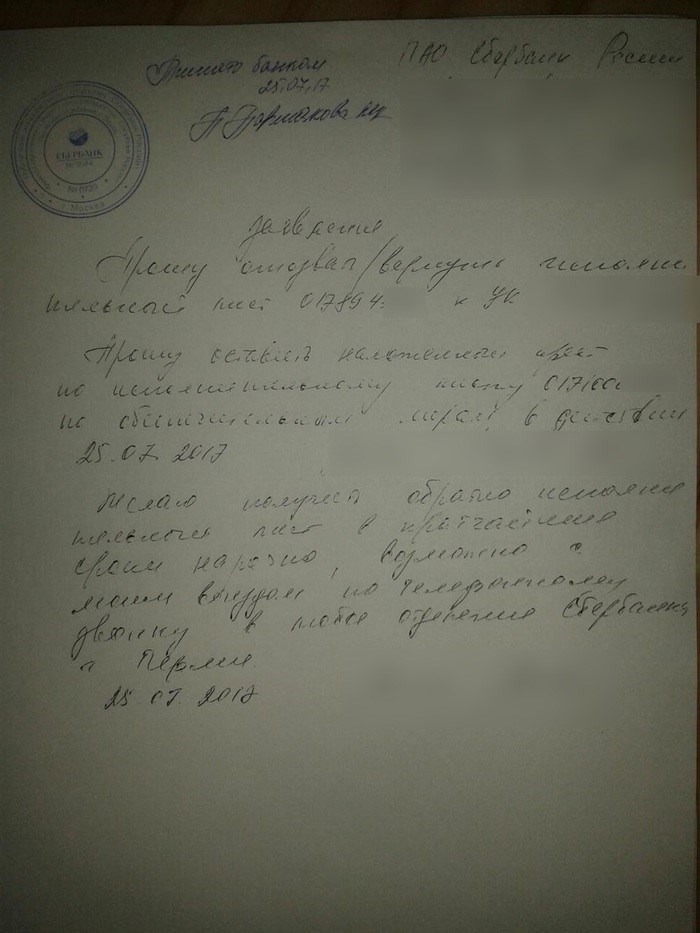 ПАО Сбербанк России
Принято банком
25.07.17
СБЕРБАНК
г. Москва
Заявление
Прошу отозвать/вернуть исполни
тельный лист 017894 к УК
Прошу оставить наложенный арест
по исполнительному листу
по обеспечительным мерам в действии
25.07.2017
Желаю получить обратно исполни
тельный лист в кратчайшие
сроки нарочно, возможно с
моим выездом по телефонному
звонку в любое отделение Сбербанка
г. Перми.
25.07.2017